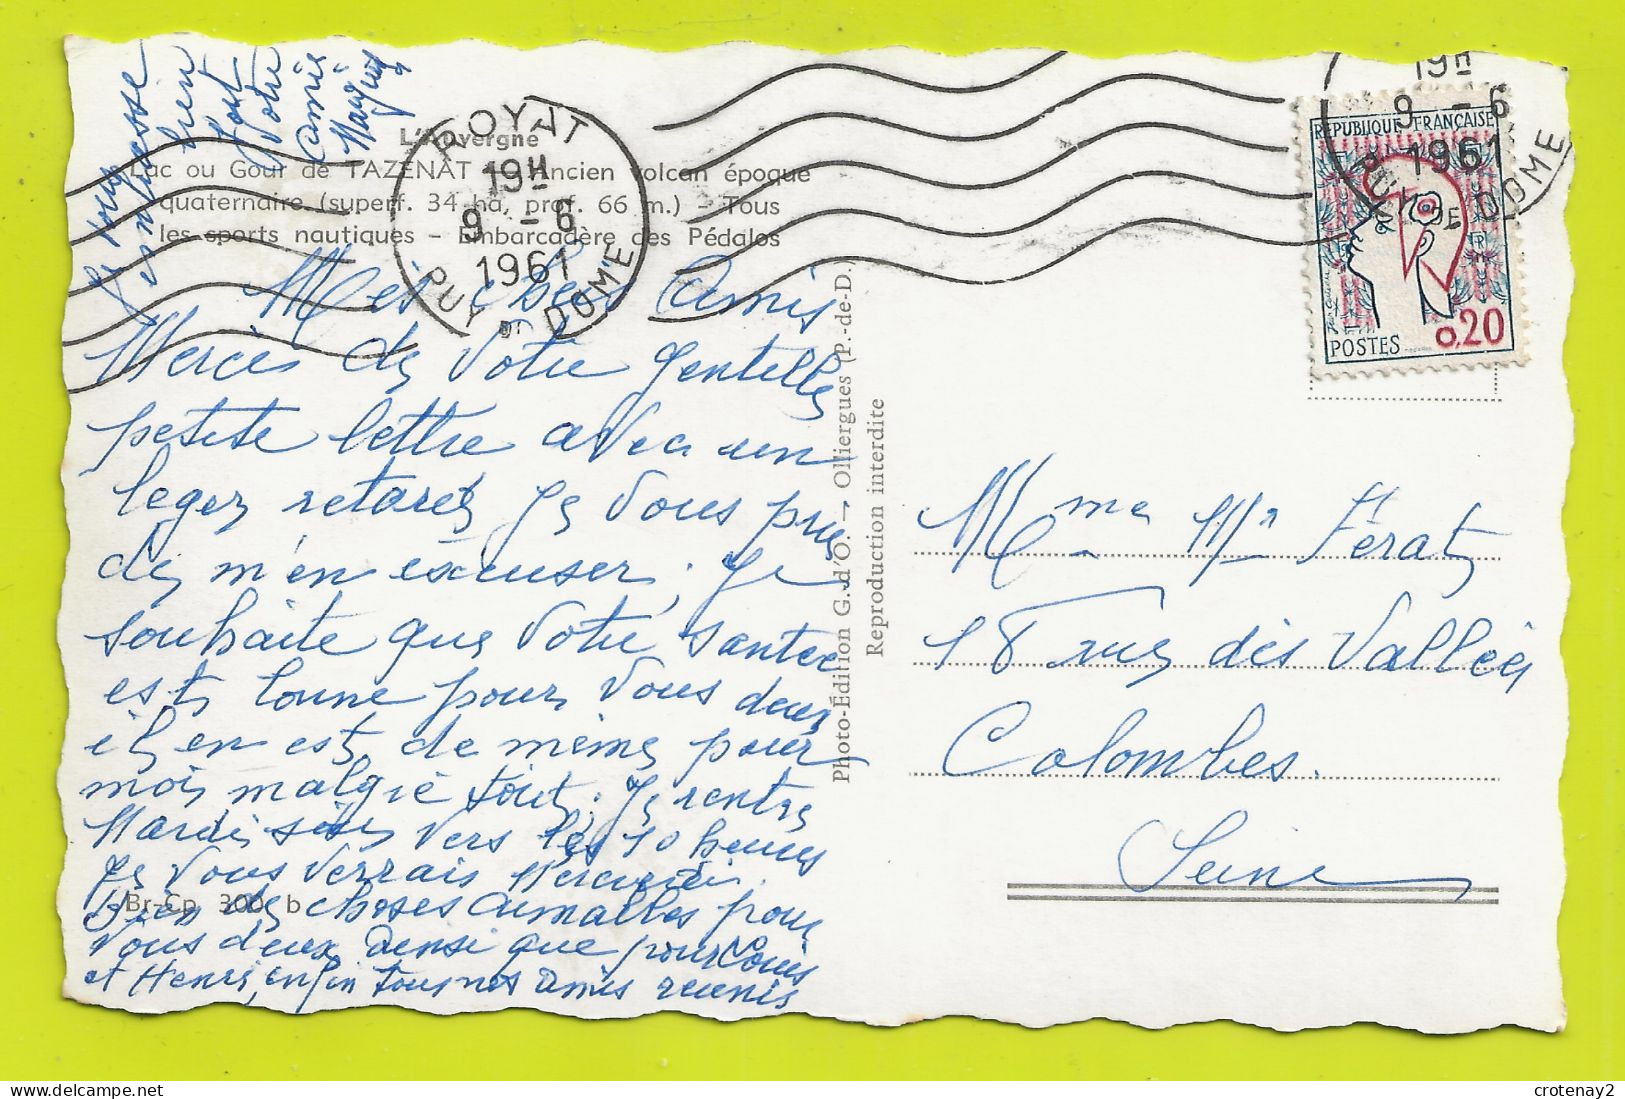 L'Auvergne
Lac ou Gour de TAZENAT Ancien volcan époque
quaternaire (superf. 34 ha, prof. 66 m.) - Tous
les sports nautiques - Embarcadère des Pédalos
ROYAT
19H
9 - 6
1961
PUY DE DOME
19H
9 - 6
1961
PUY DE DOME
REPUBLIQUE FRANÇAISE
0,20
POSTES
Mes chers Amis
Mercis de Votre gentille
petite lettre avec un
leger retard je Vous prie
de m'en excuser, je
souhaite que Votre santee
est bonne pour Vous deux
il en est de même pour
moi malgré tout. je rentre
Mardi soir vers les 10 heures
je Vous verrais Mercredi
bien des choses aimables pour
Vous deux ainsi que pour Louis
et Henri, enfin tous nos amis reunis
je vous
embrasse
bien
fort
Votre
amie
Br-Cp 300 b
Photo-Édition G. d'O. - Olliergues (P.-de-D.)
Reproduction interdite
Mme Mr Férat
18 rue des Vallées
Colombes.
Seine
crotenay2